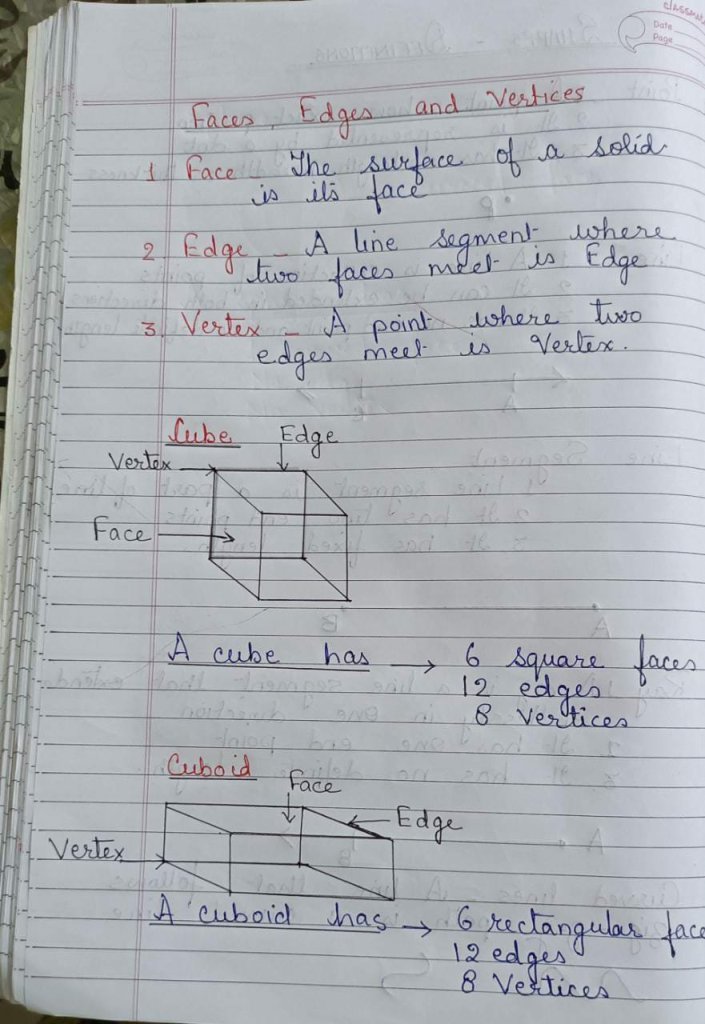 classmate
Date
Page
Faces, Edges and Vertices
1 Face The surface of a solid
is its face
2 Edge - A line segment where
two faces meet is Edge
3. Vertex - A point where two
edges meet is Vertex.
Cube Edge
Vertex
Face
A cube has → 6 square faces
12 edges
8 vertices
Cuboid
Face
Edge
Vertex
A cuboid has → 6 rectangular face
12 edges
8 Vertices